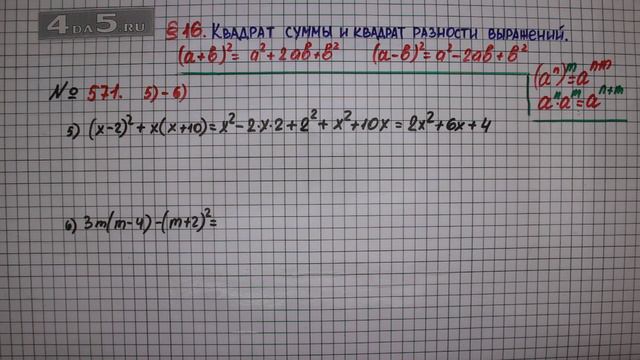 4DA5.RU
§ 16. КВАДРАТ СУММЫ И КВАДРАТ РАЗНОСТИ ВЫРАЖЕНИЙ.
(a+b)² = a² + 2ab + b² (a-b)² = a² - 2ab + b²
(aⁿ)ᵐ = aⁿᵐ
aⁿ · aᵐ = aⁿ⁺ᵐ
№ 571. 5)-6)
5) (x-2)² + x(x+10) = x² - 2·x·2 + 2² + x² + 10x = 2x² + 6x + 4
6) 3m(m-4) - (m+2)² =